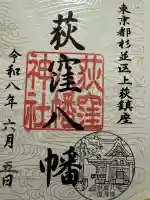 東京都杉並区上荻鎮座
荻窪八幡
荻窪八幡神社
令和八年六月五日